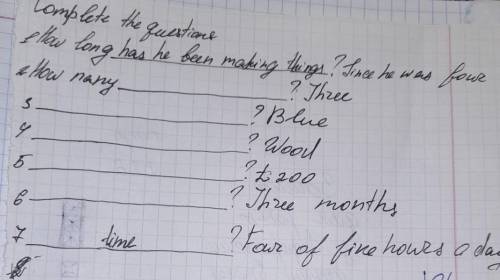 Complete the questions
1 How long has he been making things? Since he was four
2 How many ? Three
3 ? Blue
4 ? Wood
5 ? £200
6 ? Three months
7 time ? Four of five hours a day